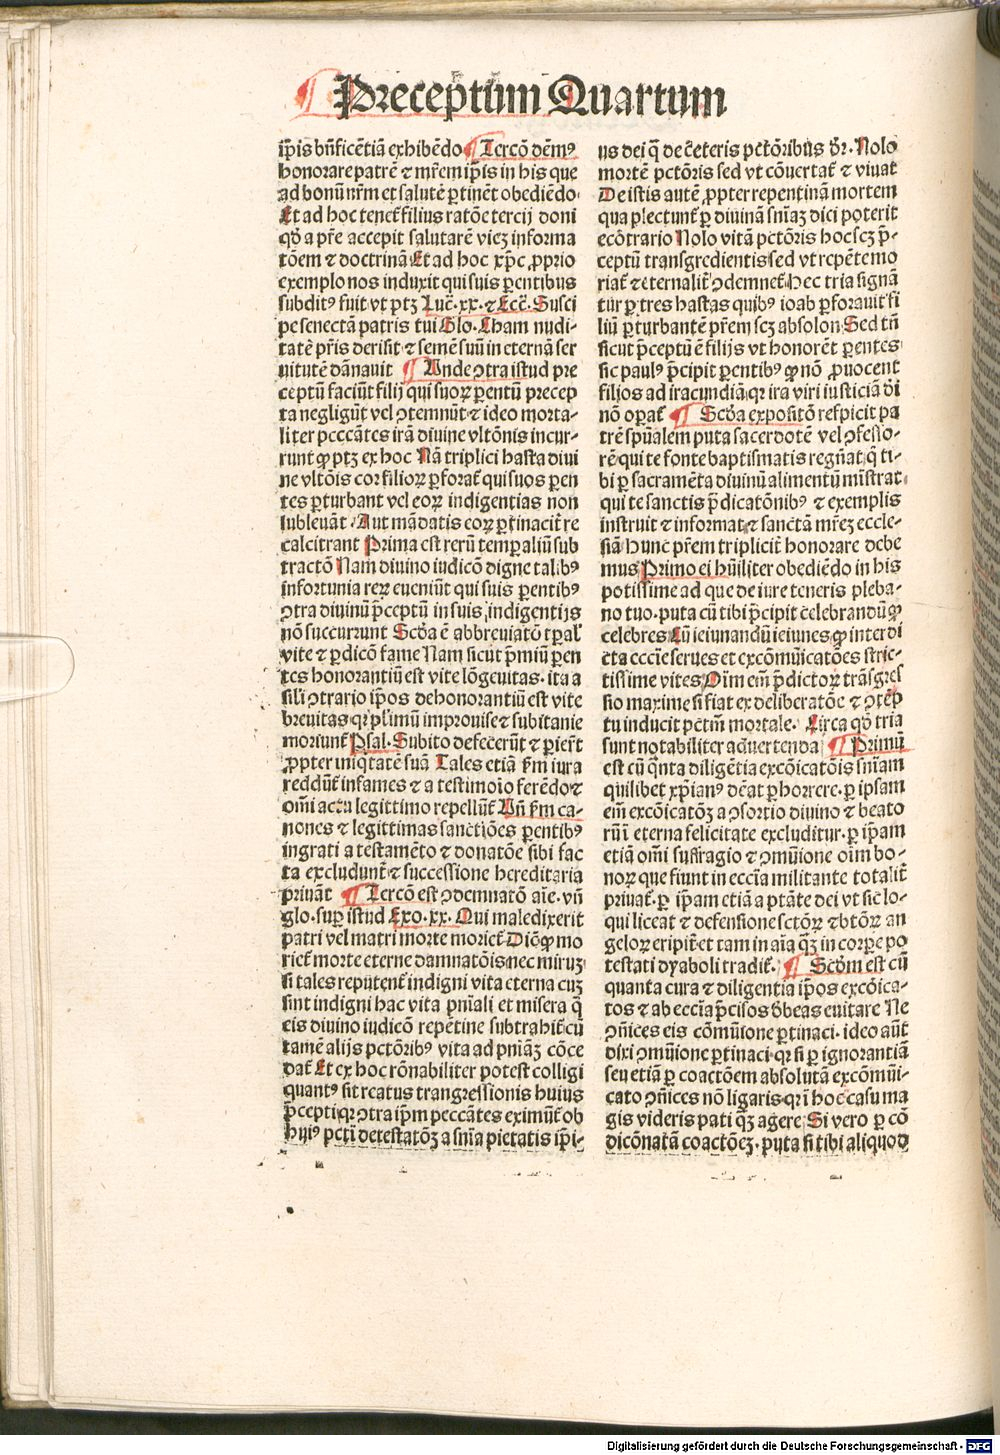 ¶ Preceptum Quartum
ip̄is bn̄ficētiā exhibēdo ¶ Tercō dēmꝰ
honorare patrē ⁊ mr̄em ip̄is in his que
ad bonū nr̄m et salutē ꝑtinēt obediēdo·
Et ad hoc tenet̄ filius ratōe tercij doni
qd̄ a pr̄e accepit salutarē viꝫ informa
tōem ⁊ doctrinā Et ad hoc xp̄c ꝓprio
exemplo nos induxit qui suis ꝑentibus
subditꝰ fuit vt ptꝫ Luc̄. xx. ⁊ Ecc̄. Susci
pe senectā patris tui Glo. Cham nudi-
tatē pr̄is derisit ⁊ semē suū in eternā ser
vitutē dānauit ¶ Unde ꝯtra istud pre
ceptū faciūt filij qui suoꝝ ꝑentū precep
ta negligūt vel ꝯtemnūt ⁊ ideo morta-
liter peccātes irā diuine vltōnis incur-
runt ꝙ ptꝫ ex hoc Nā triplici hasta diui
ne vltōis cor filioꝝ ꝑforat̄ qui suos ꝑen
tes ꝑturbant vel eoꝝ indigentias non
subleuāt. Aut mādatis eoꝝ ꝑtinacit̄ re
calcitrant Prima est rerū temꝑaliū sub
tractō Nam diuino iudicō digne talibꝰ
infortunia reꝝ eueniūt qui suis ꝑentibꝰ
ꝯtra diuinū p̄ceptū in suis indigentijs
nō succurrunt Scd̄a ē abbreuiatō tp̄al̓
vite ⁊ ꝑdicō fame Nam sicut p̄miū ꝑen
tes honorantiū est vite lōgeuitas· ita a
sili ꝯtrario ip̄os dehonorantiū est vite
breuitas qꝛ pl̓imū improuise ⁊ subitanie
moriunt̄ Psal. Subito defecerūt ⁊ ꝑier̄t
ꝓpter iniq̄tatē suā Tales etiā ẜm iura
reddūt̄ infames ⁊ a testimoīo ferēdo ⁊
om̄i actu legittimo repellūt̄ Un̄ ẜm ca-
nones ⁊ legittimas sanctiōes ꝑentibꝰ
ingrati a testamēto ⁊ donatōe sibi fac
ta excludunt̄ ⁊ successione hereditaria
priuāt̄ ¶ Tercō est ꝯdemnatō aīe. vn̄
glo. suꝑ istud Exo. xx. Qui maledixerit
patri vel matri morte moriet̄ Diōꝙ mo
riet̄ morte eterne damnatōis nec miruꝫ
si tales reputent̄ indigni vita eterna cuꝫ
sint indigni hac vita pn̄iali et misera q̄
eis diuino iudicō repētine subtrahit̄ cū
tamē alijs pctōribꝰ vita ad pniāꝫ cōce
dat̄ Et ex hoc rōnabiliter potest colligi
quantꝰ sit reatus trangressionis huius
p̄cepti qꝛ ꝯtra ip̄m peccātes eximūt̄ ob
huiꝰ pctī detestatōꝫ a sn̄ia pietatis ip̄i-
us dei q̄ de c̄eteris pctōribus dr̄. Nolo
mortē pctōris sed vt cōuertat̄ ⁊ viuat
De istis autē ꝓpter repentinā mortem
qua plectunt̄ ꝑ diuinā sn̄iaꝫ dici poterit
ecōtrario Nolo vitā pctōris hoc scꝫ p̄-
ceptū transgredientis sed vt repēte mo
riat̄ ⁊ eternalit̄ ꝯdemnet̄ Hec tria signā
tur ꝑ tres hastas quibꝰ ioab ꝑforauit fi
liū ꝑturbantē pr̄em scꝫ absolon Sed tn̄
sicut p̄ceptū ē filijs vt honorēt ꝑentes
sic paulꝰ p̄cipit ꝑentibꝰ ꝙ nō ꝓuocent
filios ad iracundiā qꝛ ira viri iusticiā d̄i
nō oꝑat̄ ¶ Scd̄a expositō respicit pa
trē sp̄ualem puta sacerdotē vel ꝯfesso-
rē qui te fonte baptismatis regn̄at q̄ ti-
bi ꝑ sacramēta diuinū alimentū mīstrat
qui te sanctis p̄dicatōnibꝰ ⁊ exemplis
instruit ⁊ informat ⁊ sanctā mr̄eꝫ eccle-
siā Hunc pr̄em triplicit̄ honorare debe
mus Primo ei hūiliter obediēdo in his
potissime ad que de iure teneris pleba-
no tuo· puta cū tibi p̄cipit celebrandū ꝙ
celebres Cū ieiunandū ieiunes ꝙ interdi
cta ecc̄ie serues et excōmūicatōes stric-
tissime vites Oīm em̄ p̄dictoꝝ trāsgres
sio maxime si fiat ex deliberatōe ⁊ ꝯtēp
tu inducit pctm̄ mortale. Circa qd̄ tria
sunt notabiliter aduertenda ¶ Primū
est cū q̄nta diligētia excōicatōis sn̄iam
quilibet xp̄ianꝰ deāt ꝑhorrere· ꝑ ipsam
em̄ excōicatōꝫ a ꝯsortio diuino ⁊ beato
rū ī eterna felicitate excluditur· ꝑ ip̄am
etiā om̄i suffragio ⁊ ꝯmūione oīm bo-
noꝝ que fiunt in ecc̄ia militante totalit̄
priuat̄· ꝑ ip̄am etiā a ptāte dei vt sic lo-
qui liceat ⁊ defensione sctōꝝ ⁊ btōꝝ an
geloꝝ eripit̄ et tam in aīa q̄ꝫ in corꝑe po
testati dyaboli tradit̄. ¶ Scd̄m est cū
quanta cura ⁊ diligentia ip̄os excōica-
tos ⁊ ab ecc̄ia p̄cisos d̄beas euitare Ne
ꝯn̄ices eis cōmūione ꝑtinaci· ideo aūt
dixi ꝯmūione ꝑtinaci qꝛ si ꝑ ignorantiā
seu etiā ꝑ coactōem absolutā excōmūi-
cato ꝯn̄ices nō ligaris qꝛ ī hoc casu ma
gis videris pati q̄ꝫ agere Si vero ꝑ cō
dicōnatā coactōeꝫ· puta si tibi aliquod
Digitalisierung gefördert durch die Deutsche Forschungsgemeinschaft - DFG